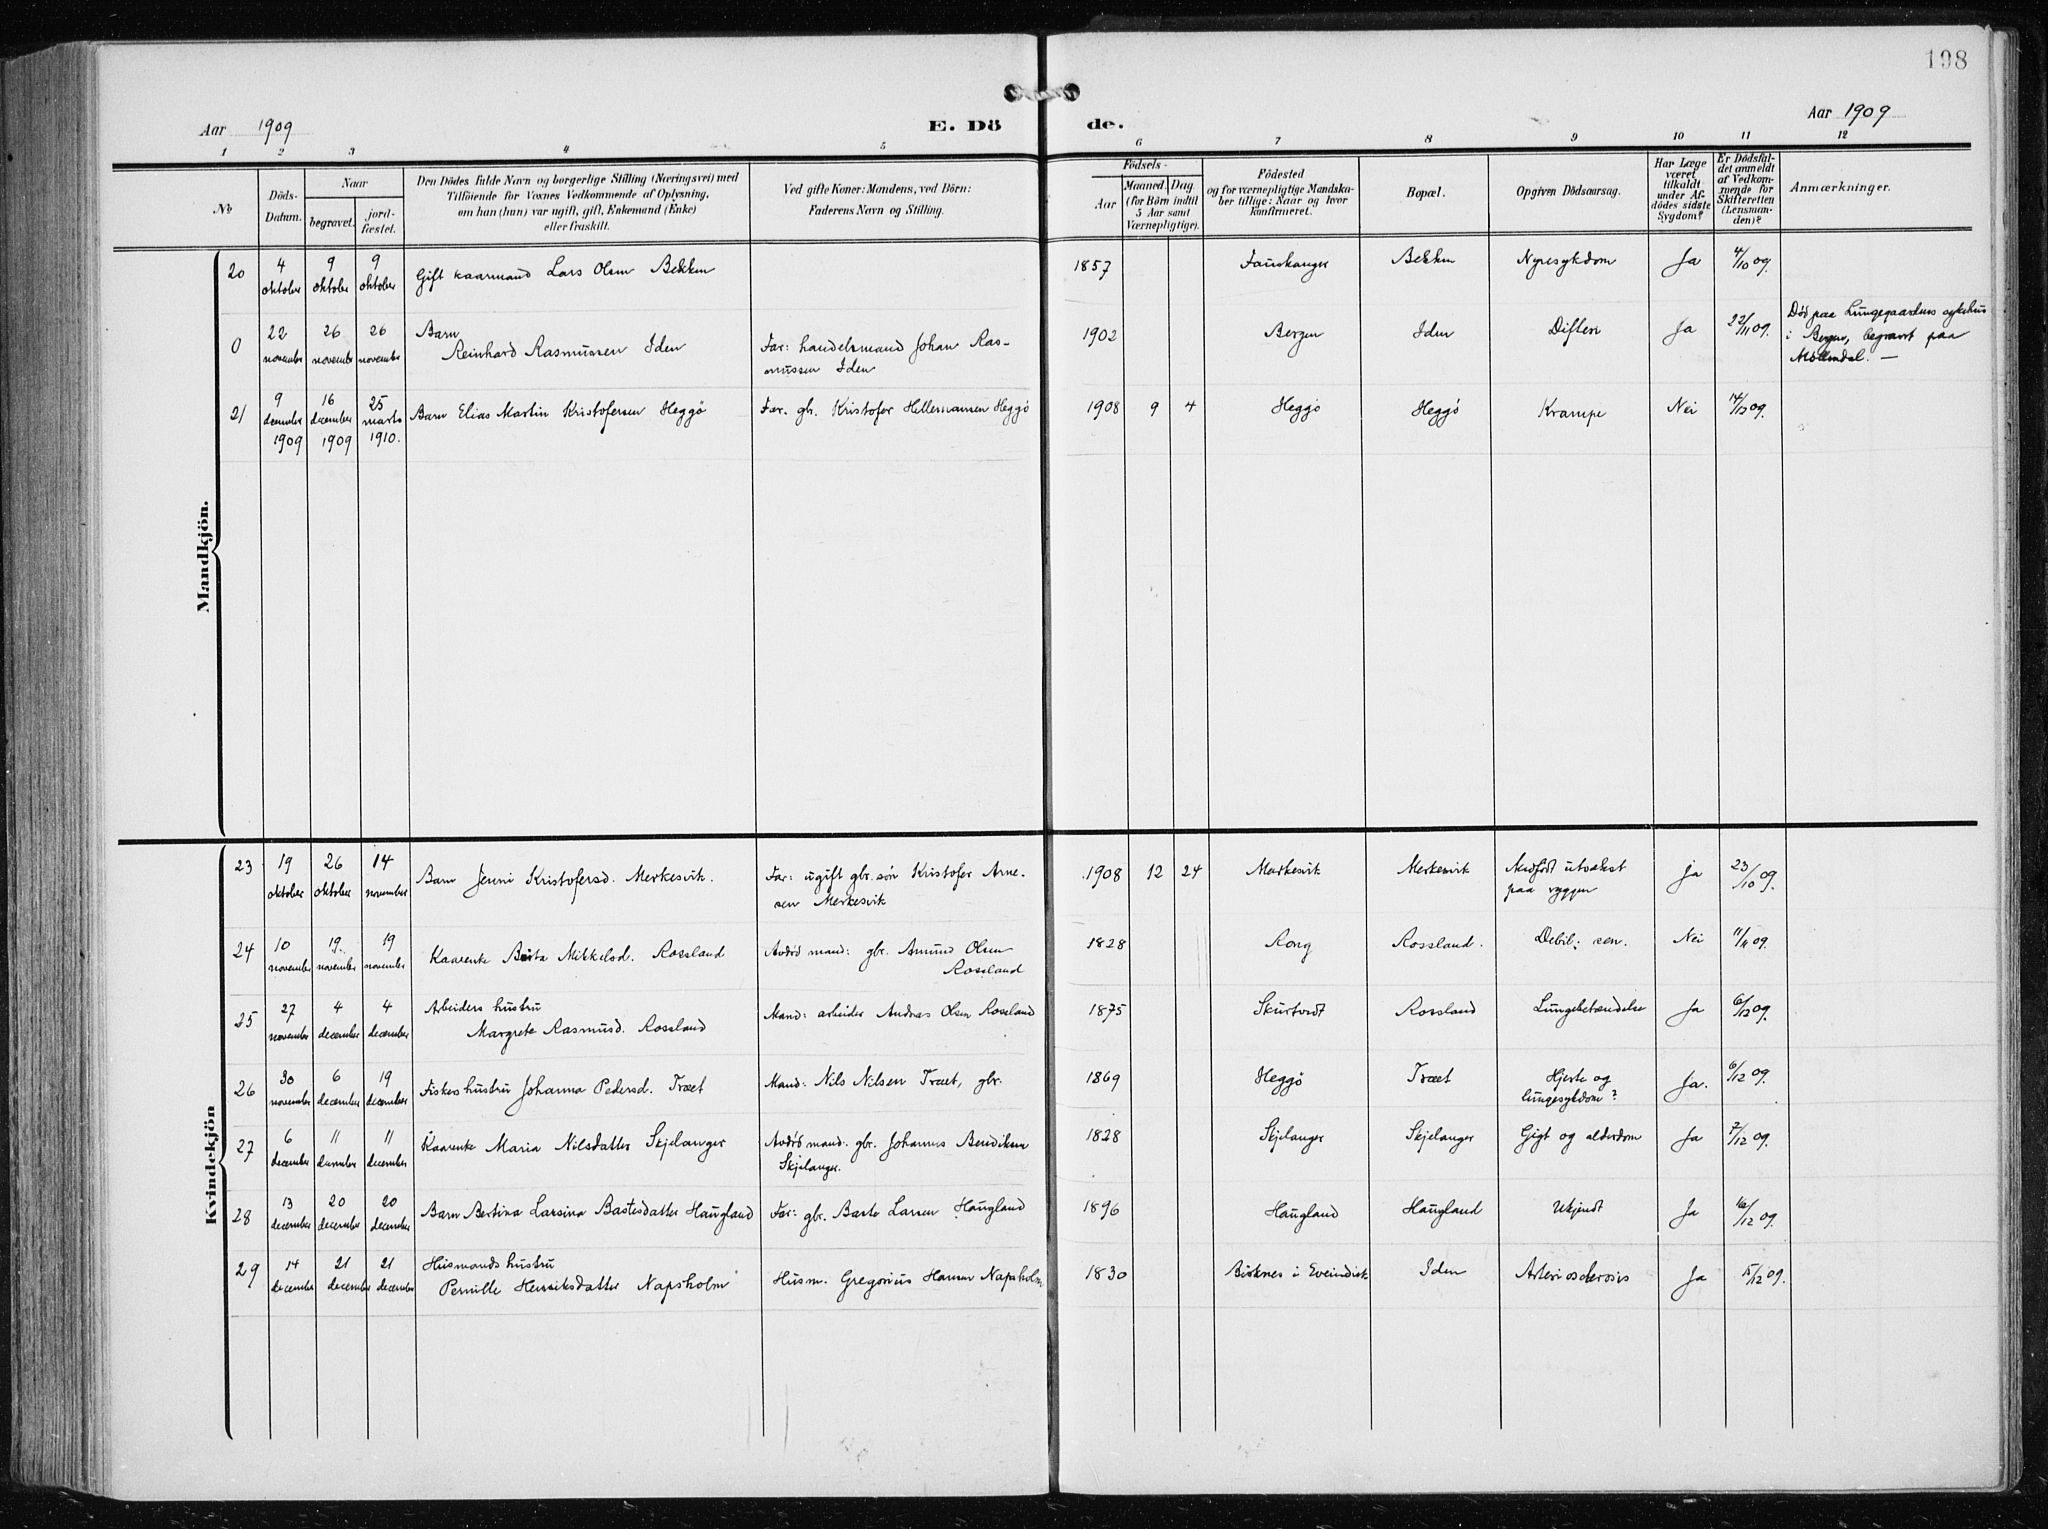 198
Aar 1909
E. Dö de.
Aar 1909
1 2 3 4 5 6 7 8 9 10 11 12
No
Döds-Datum.
Naar
begravet.
jord-fæstet.
Den Dödes fulde Navn og borgerlige Stilling (Næringsvei) med
Tilföiende for Voxnes Vedkommende af Oplysning,
om han (hun) var ugift, gift, Enkemand (Enke)
eller fraskilt.
Ved gifte Koner: Mandens, ved Börn:
Faderens Navn og Stilling.
Födsels-
Aar
Maaned. Dag
(for Börn indtil
5 Aar samt
Værnepligtige).
Födested
og for værnepligtige Mandska-
ber tillige: Naar og hvor
konfirmeret.
Bopæl.
Opgiven Dödsaarsag.
Har Læge
været
tilkaldt
under Af-
dödes sidste
Sygdom?
Er Dödsfal-
det anmeldt
af Vedkom-
mende for
Skifteretten
(Lensman-
den)?
Anmærkninger.
Mandkjön.
20 4 oktober 9 oktober 9 oktober Gift kaarmand Lars Olsen Bekken 1857 Fauskanger Bekken Nyresykdom Ja 4/10 09.
0 22 november 26 november 26 november Barn
Reinhard Rasmussen Iden Far: handelsmand Johan Ras-
mussen Iden 1902 Bergen Iden Difteri Ja 22/11 09. Död paa Lungegaardens sykehus
i Bergen, begravet paa
Möllendal. —
21 9 december 1909 16 december 1909 25 marts 1910. Barn Elias Martin Kristofersen Heggö Far. gb. Kristofer Hillemansen Heggö 1908 9 4 Heggö Heggö Krampe Nei 14/12 09.
Kvindekjön
23 19 oktober 26 oktober 14 november Barn Jenni Kristofersd. Merkesvik. Far: ugift gbr. sön Kristofer Arne-
sen Merkesvik 1908 12 24 Merkesvik Merkesvik Medfödt utvækst
paa ryggen Ja 23/10 09.
24 10 november 19. november 19 november Kaarenke Berta Mikkelsd. Rossland Avdöd mand: gbr. Amund Olsen
Rossland 1828 Rong Rossland. Debil: sen. Nei 11/11 09.
25 27 november 4 december 4 december Arbeiders hustru
Margrete Rasmusd. Rossland Mand: arbeider Andreas Olsen Rossland 1875 Skurtvedt Rossland Lungebetændelse Ja 6/12 09.
26 30 november 6 december 19 december Fiskers hustru Johanna Pedersd. Træet Mand: Nils Nilsen Træet, gbr. 1869 Heggö Træet Hjerte og
lungesykdom? Ja. 6/12 09.
27 6 december 11 december 11 december Kaarenke Maria Nilsdatter Skjelanger Avdöd mand: gbr. Johannes Bendiksen
Skjelanger. 1828 Skjelanger Skjelanger Gigt og alderdom Ja 7/12 09.
28 13 december 20 december 20 december Barn Bertina Larsina Bastesdatter Haugland Far: gbr. Baste Larsen Haugland 1896 Haugland Haugland Ukjendt Ja 16/12 09.
29 14 december 21 december 21 december Husmands hustru
Pernille Henriksdatter Napsholm Husm. Gregorius Hansen Napsholm. 1830 Birknes i Eveindvik Iden Arteriosclerosis Ja 15/12 09.